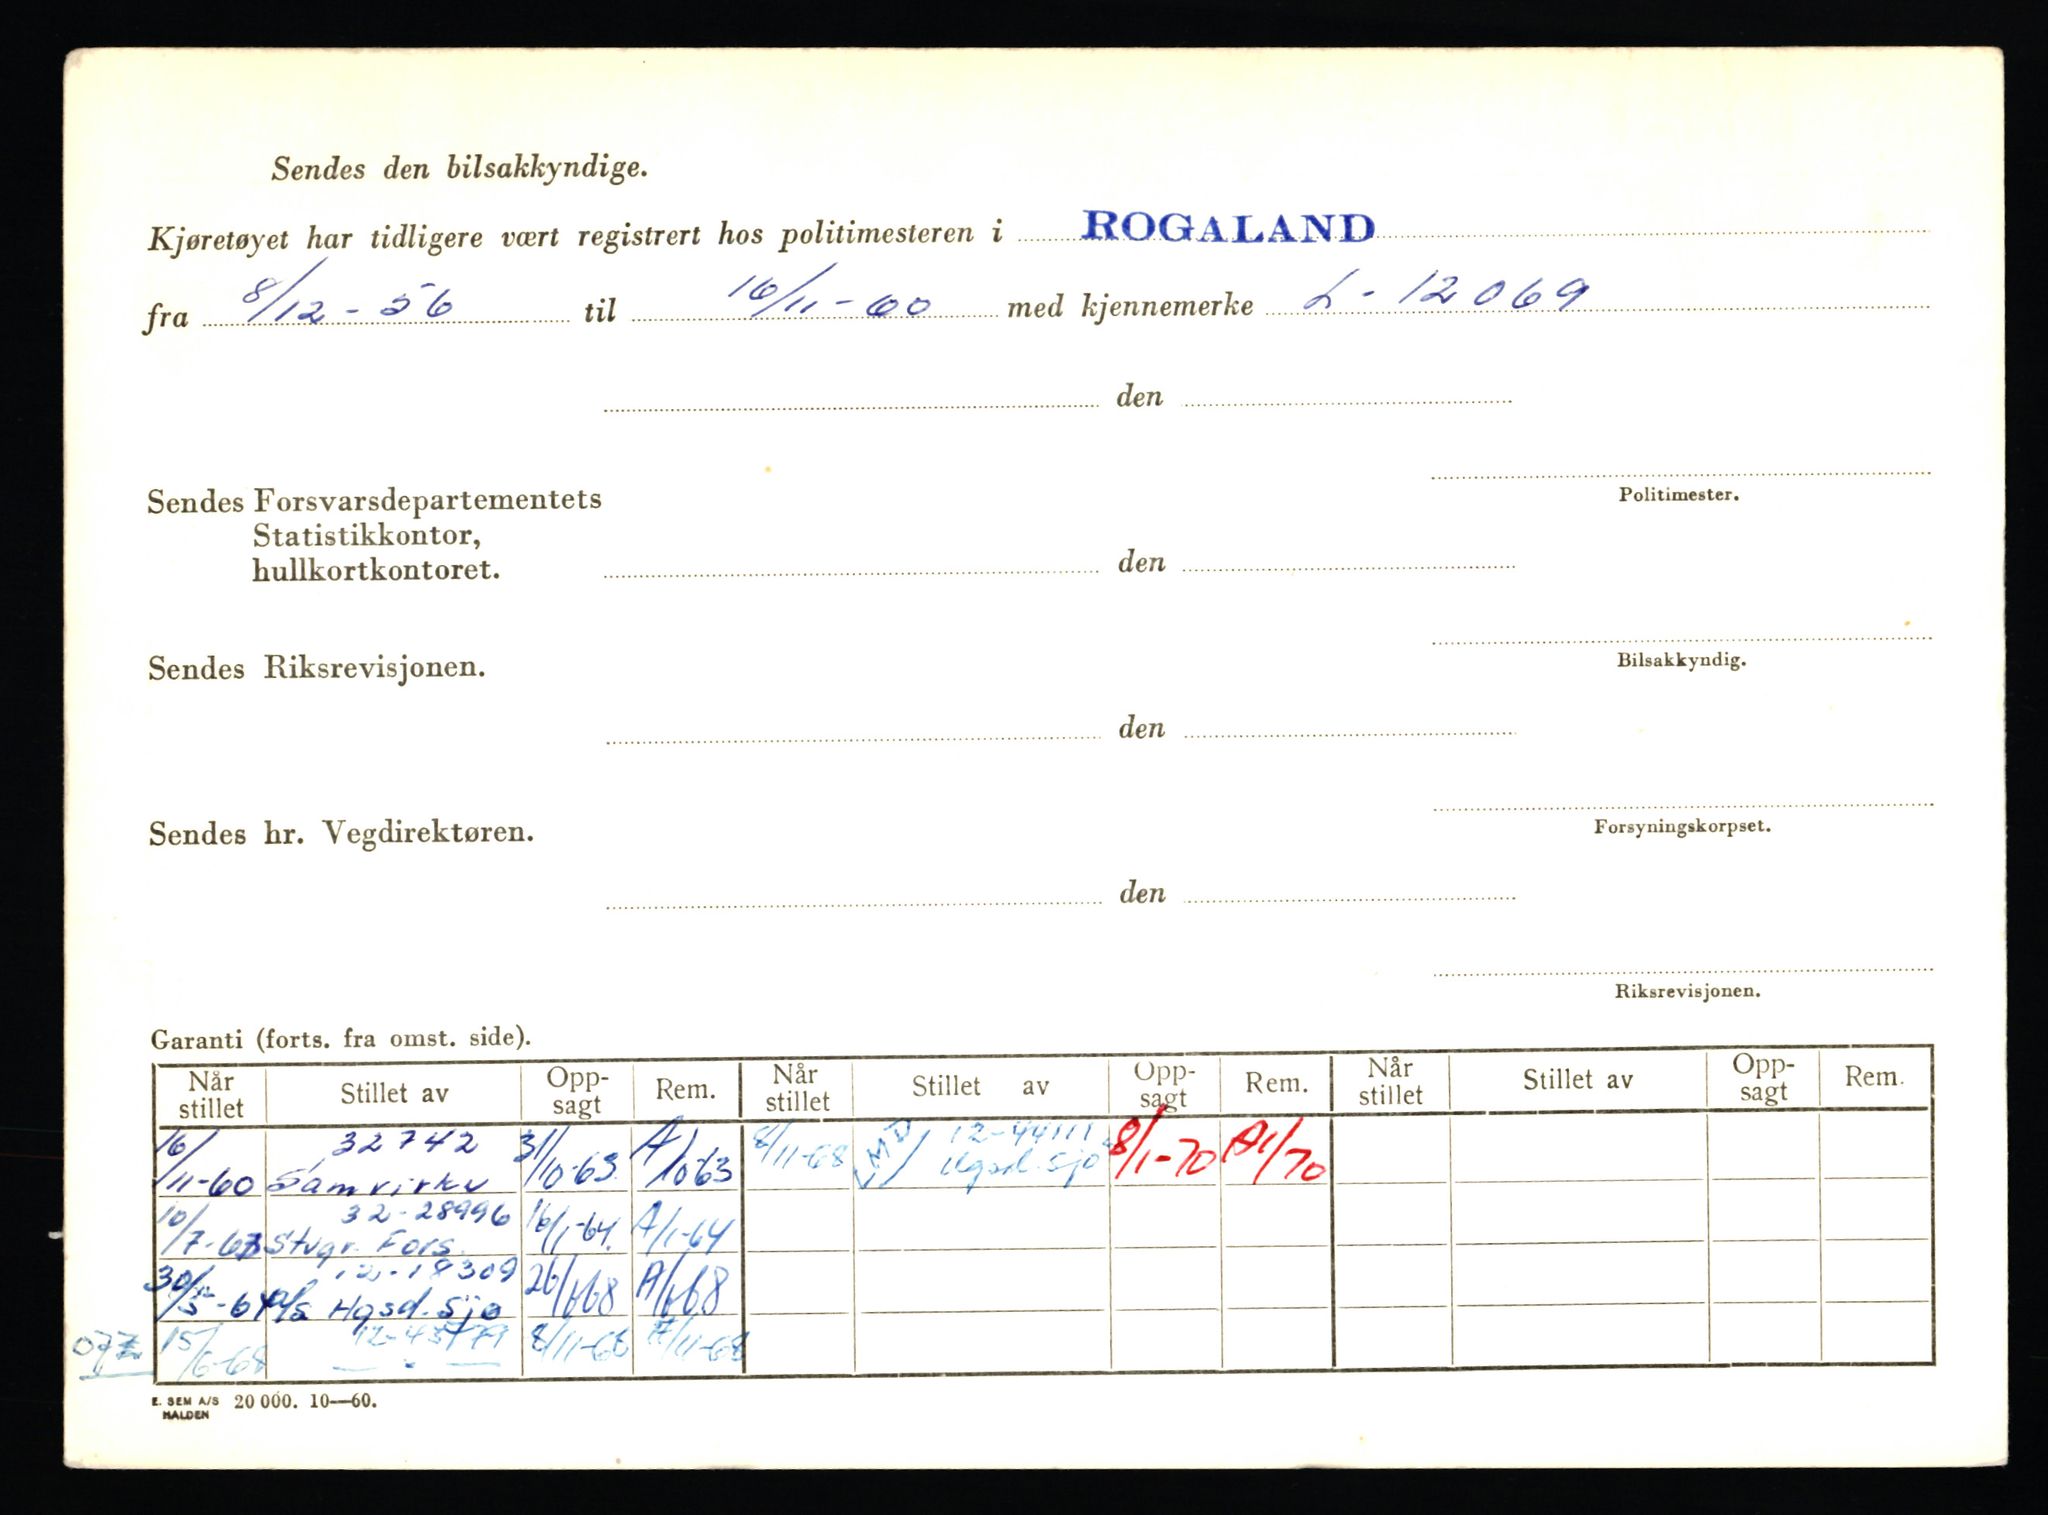 Sendes den bilsakkyndige.
Kjøretøyet har tidligere vært registrert hos politimesteren i ROGALAND
fra 8/12-56 til 16/11-60 med kjennemerke L-12069
den
Politimester.
Sendes Forsvarsdepartementets
Statistikkontor,
hullkortkontoret.
den
Bilsakkyndig.
Sendes Riksrevisjonen.
den
Forsyningskorpset.
Sendes hr. Vegdirektøren.
den
Riksrevisjonen.
Garanti (forts. fra omst. side).
Når stillet Stillet av Opp-sagt Rem. Når stillet Stillet av Opp-sagt Rem. Når stillet Stillet av Opp-sagt Rem.
16/11-60 32742 Samvirke 31/10-63 A/10-63 8/11-68 12-44111 Hgsd. Sjø 8/1-70 A1/70
10/7-63 32-28996 Stvgr. Fors. 16/1-64 A/1-64
30/ -64 A/S Hgsd. Sjø 12-18309 26/6-68 A/6-68
15/6-68 8/11-68 A/11-68
E. SEM A/S HALDEN 20 000. 10—60.